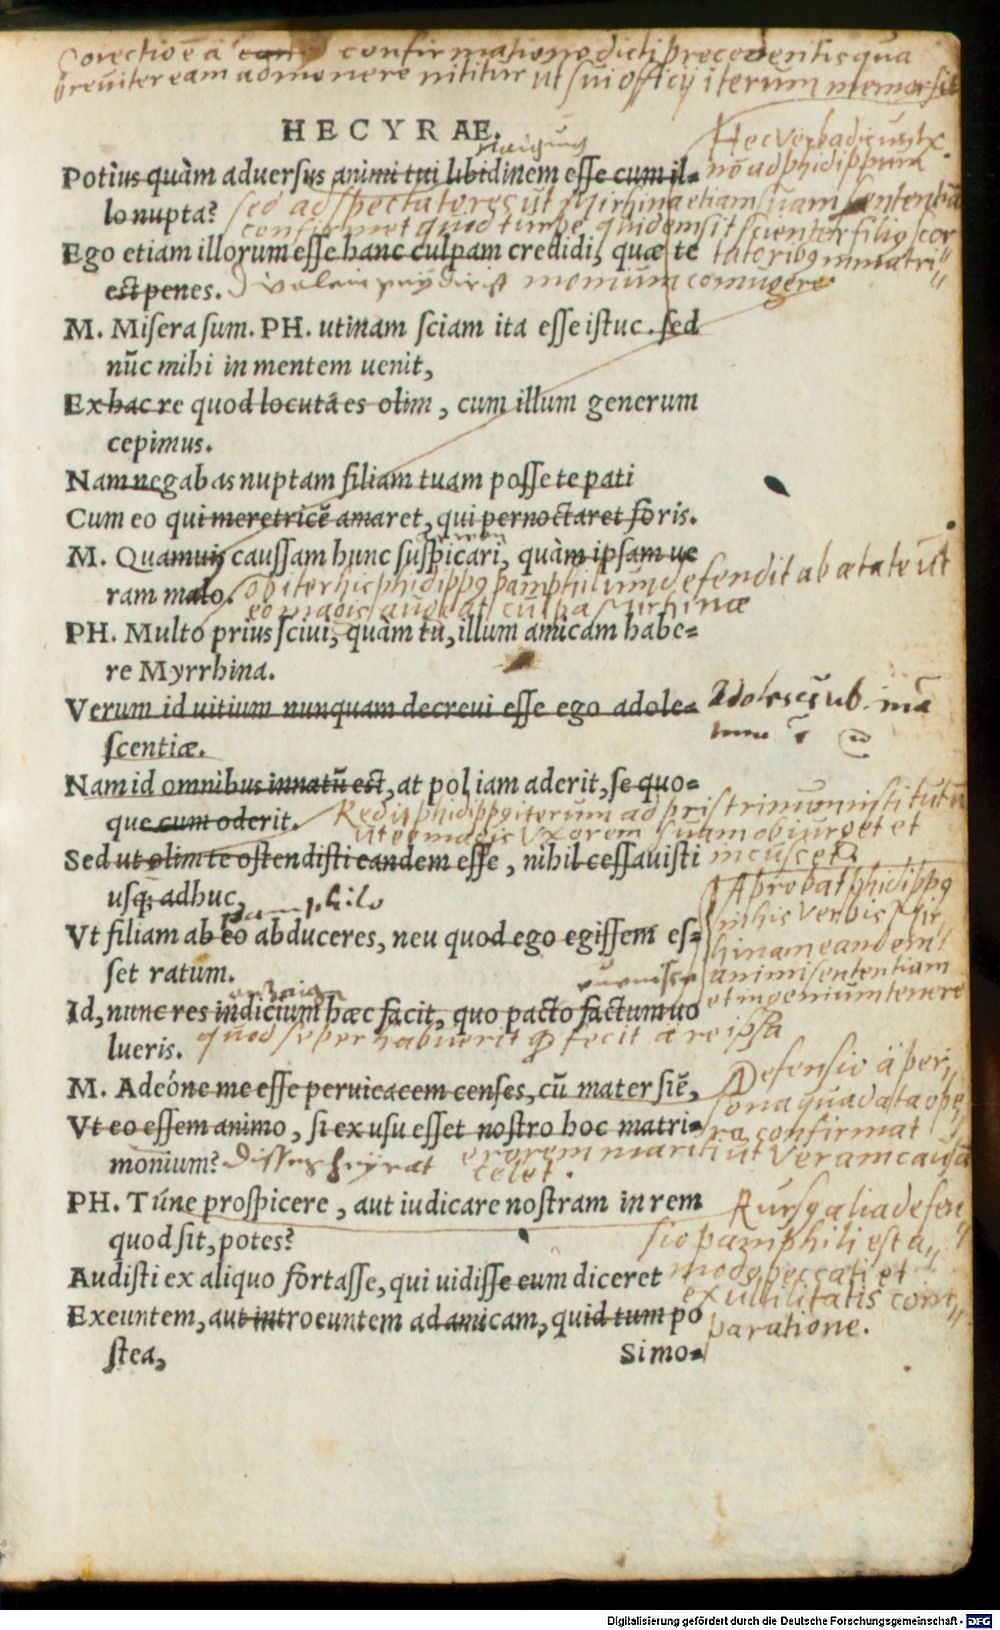 confirmationo dicti precedentis qua
breviter eam admonere nititur ut sui officij iterum memor sit
HECYRAE.
Potius quàm aduersus animi tui libidinem esse cum il-
lo nupta?
Hec verba dicuntur
non ad phidippum
sed ad spectatores ut Mirhina etiam suam sententiā
Ego etiam illorum esse hanc culpam credidi, quæ te
est penes.
M. Misera sum. PH. utinam sciam ita esse istuc. sed
nūc mihi in mentem uenit,
Ex hac re quod locuta es olim, cum illum generum
cepimus.
Nam negabas nuptam filiam tuam posse te pati
Cum eo qui meretricē amaret, qui pernoctaret foris.
M. Quamuis caussam hunc suspicari, quàm ipsam ue
ram malo.
obiter hic phidippus pamphilum defendit ab ætate ut
eo magis audeat culpa Mirhinæ
PH. Multo prius sciui, quàm tu, illum amicam habe-
re Myrrhina.
Verum id uitium nunquam decreui esse ego adole-
scentiæ.
Nam id omnibus innatū est, at pol iam aderit, se quo-
que cum oderit.
Redit phidippus iterum ad pristinum institutum
ut eo magis uxorem suam obiurget et
incuset
Sed ut olim te ostendisti eandem esse, nihil cessauisti
usq; adhuc,
pamphilo
Vt filiam ab eo abduceres, neu quod ego egissem es-
set ratum.
Aprobat phidippus
in his verbis Mir,
hinam eandem
animi sententiam
et ingenium tenere
Id, nunc res indicium hæc facit, quo pacto factum uo
lueris.
quod seper habuerit & fecit a re ipsa
M. Adeóne me esse peruicacem censes, cū mater siē,
Vt eo essem animo, si ex usu esset nostro hoc matri-
monium?
Defensio a per,
sona quadata ope,
ra confirmat
errorem mariti ut veram causā
celet.
PH. Túne prospicere, aut iudicare nostram in rem
quod sit, potes?
Audisti ex aliquo fortasse, qui uidisse eum diceret
Exeuntem, aut introeuntem ad amicam, quid tum po
stea,
Rursus alia defen
sio pamphili est a,,
modo peccati et
ex utilitatis com,,
paratione.
Simo-
Digitalisierung gefördert durch die Deutsche Forschungsgemeinschaft - DFG